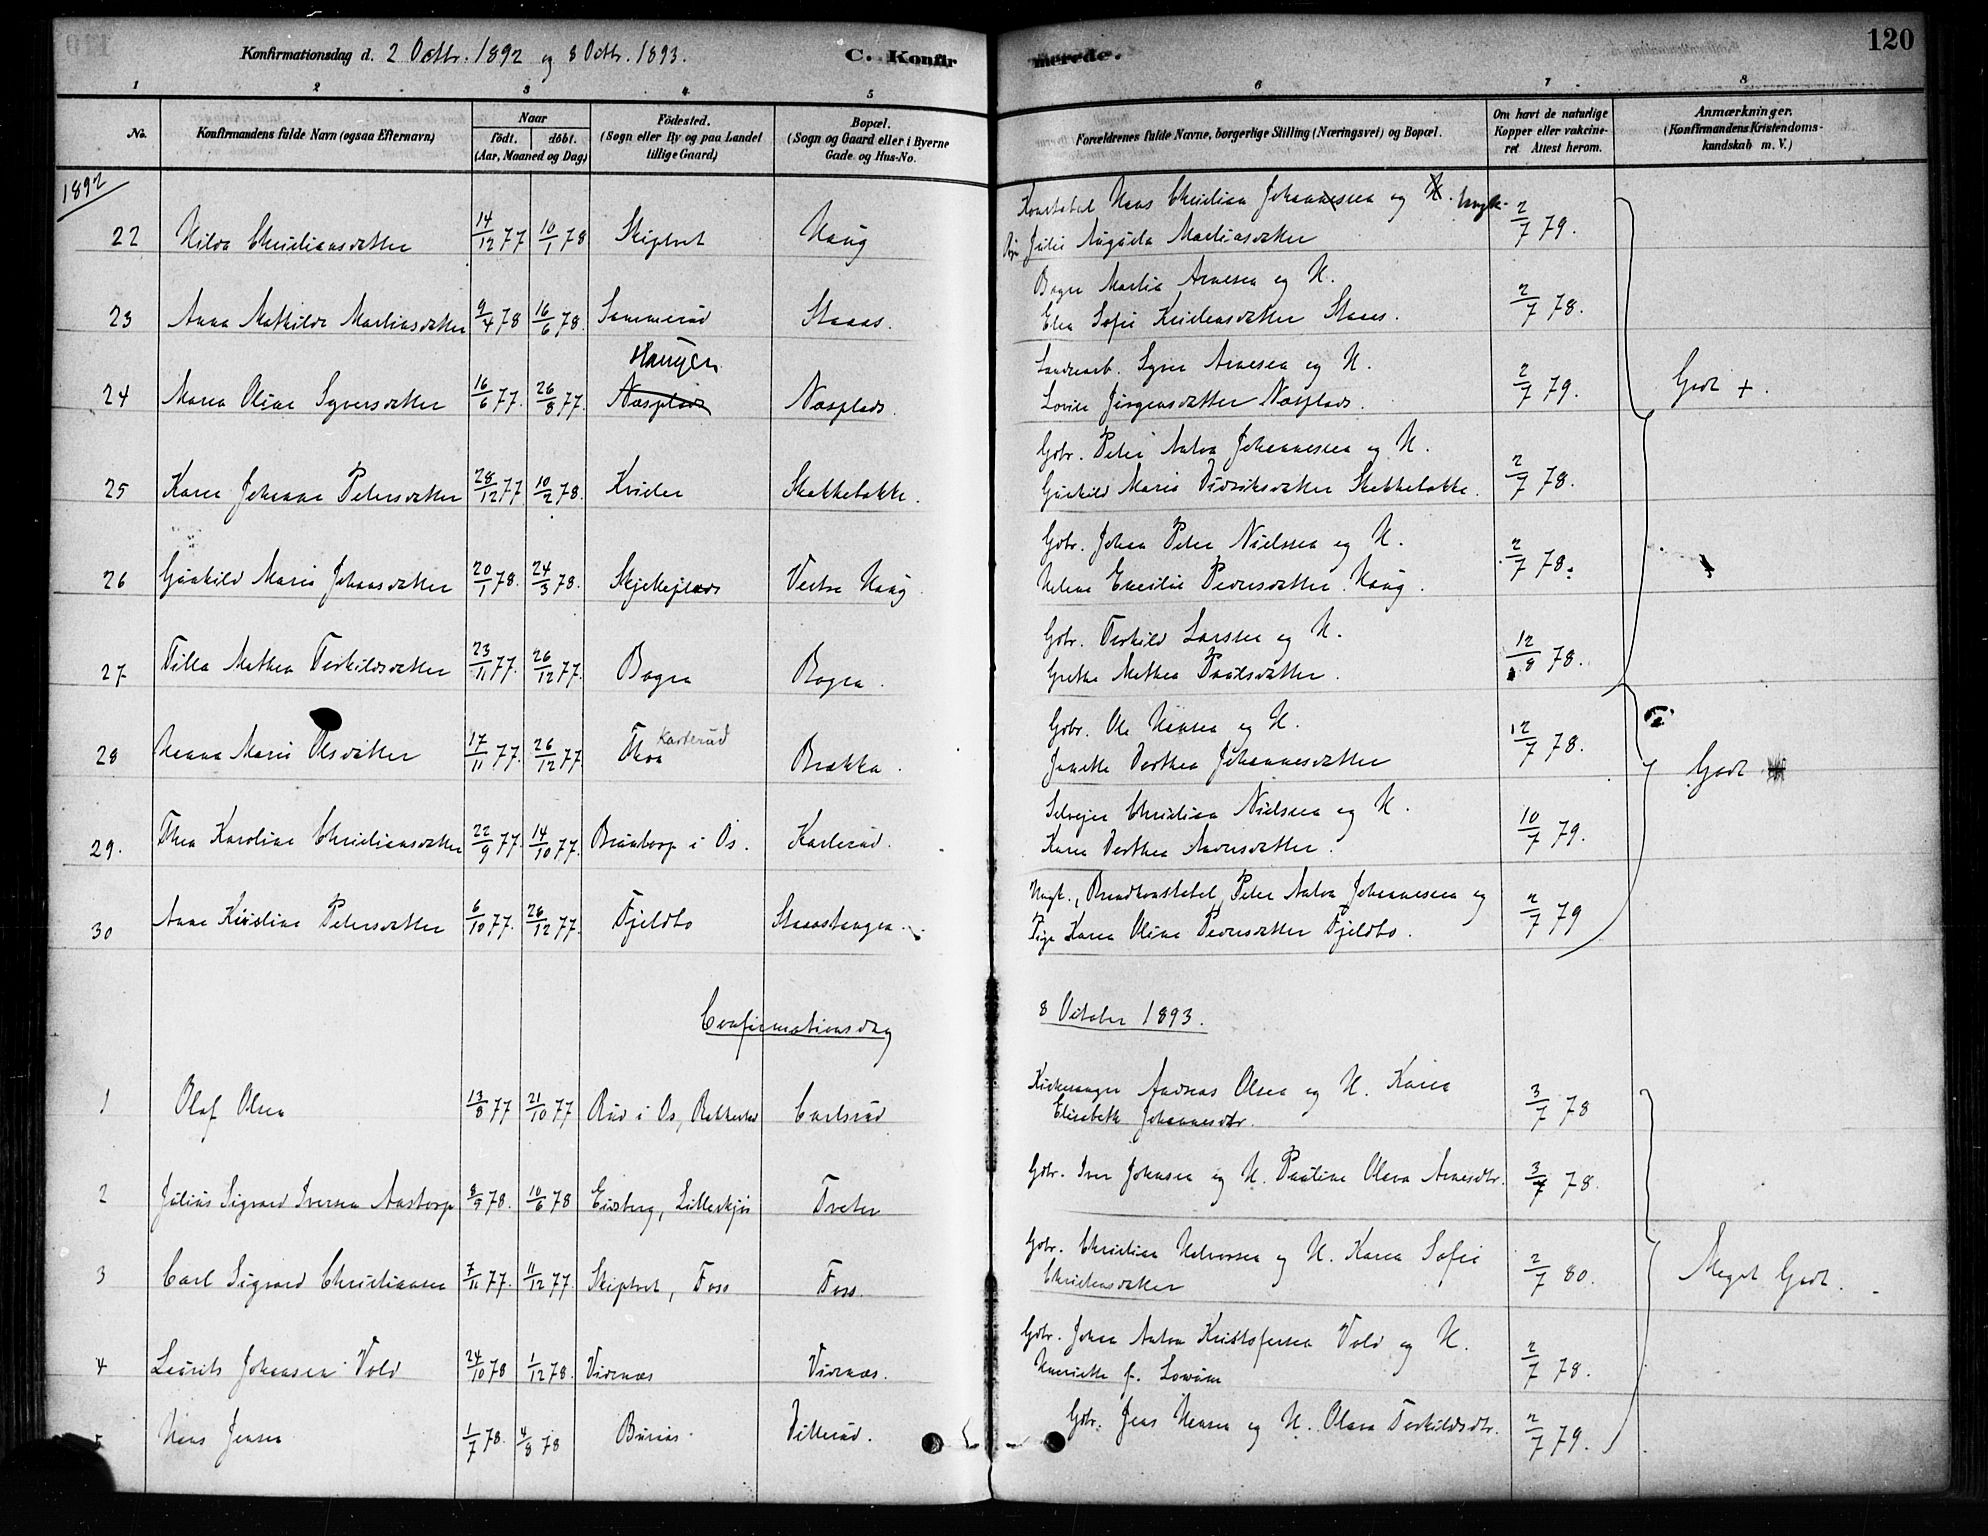 Konfirmationsdag d. 2 Octbr. 1892 og 8 Octbr. 1893.
C. Konfirmerede.
120
1 2 3 4 5 6 7 8
No.
Konfirmandens fulde Navn (ogsaa Efternavn)
Naar
födt. döbt.
(Aar, Maaned og Dag)
Födested.
(Sogn eller By og paa Landet
tillige Gaard)
Bopæl.
(Sogn og Gaard eller i Byerne
Gade og Hus-No.
Forældrenes fulde Navne, borgerlige Stilling (Næringsvei) og Bopæl.
Om havt de naturlige
Kopper eller vakcine-
ret Attest herom.
Anmærkninger.
(Konfirmandens Kristendoms-
kundskab m. V.)
1892
22 Hilda Christiansdatter 14/12 77 10/1 78 Skiptvet Haug Konstabel Hans Christian Johannesen og H. Ungk. 2/7 79.
Pige Julie Augusta Martinsdatter
23 Anna Mathilde Martinsdatter 9/4 78 16/6 78. Sammerud Staaes. Martin Arnesen og H. 2/7 78.
Elen Sofie Kristensdatter Staaes.
Haugen
24 Maren Oline Syversdatter 16/6 77. 26/8 77. Næsplads Næsplads. Landearb. Syver Arnesen og H. 2/7 79. Godt +.
Lovise Jörgensdatter Næsplads.
25 Karen Johanne Petersdatter 28/12 77 10/2 78. Kvider Stokkebakke. Gbr. Peter Anton Johannesen og H. 2/7 78.
Gunhild Marie Didriksdatter Stokkebakke.
26 Gunhild Marie Johansdatter 20/1 78. 24/3 78. Vestre Haug Gbr. Johan Peter Nielsen og H. 2/7 78.
Helene Emilie Pedersdatter Haug.
27 Tilla Mathea Terkildsdatter 23/11 77. 26/12 77. Bogen Bogen. Gbr. Terkild Larsen og H. 12/8 78.
Grethe Mathea Paulsdatter.
28 Hanna Marie Olsdatter 17/11 77. 26/12 77. Karterud Brekka. Gbr. Ole Hansen og H. 12/7 78. Godt
Janette Dorthea Johannesdatter
29. Thea Karoline Christiansdatter 22/9 77. 14/10 77. Bruntorp i Os. Karterud. Selveier Christian Nielsen og H. 10/7 79.
Karen Dorthea Andersdatter.
30 Anne Kristine Petersdatter 6/10 77. 26/12 77. Fjeldbo Staaestangen. Ungk., Brandkonstabel Peter Anton Johannesen og 2/7 79
Pige Karen Oline Pedersdatter Fjeldbo.
Confirmationsdag 8 October 1893.
1 Olaf Olsen 13/8 77 21/10 77 Rud i Os, Rakkestad Carlsrud Kirkesanger Andreas Olsen og H. Karen 3/7 78
Elisabeth Johannesdtr.
2 Julius Sigvard Iversen Aastorp 8/5 78. 10/6 78 Eidsberg, Lilleskjör Tveter Gbr. Iver Johnsen og H. Pauline Olava Arnesdtr. 3/7 78.
3 Carl Sigvard Christiansen 7/11 77. 11/12 77. Skiptvet, Foss Foss. Gbr. Christian Halvorsen og H. Karen Sofie 2/7 80. Meget Godt.
Christensdatter
4 Laurits Johansen Vold 24/10 78 1/12 78. Vidnæs Vidnæs. Gbr. Johan Anton Kristofersen Vold og H. 2/7 78.
Henriette f.
5 Hans Jensen 1/7 78. 4/8 78 Burås. Villerud. Gbr. Jens Hansen og H. Olava Terkildsdtr. 2/7 79.